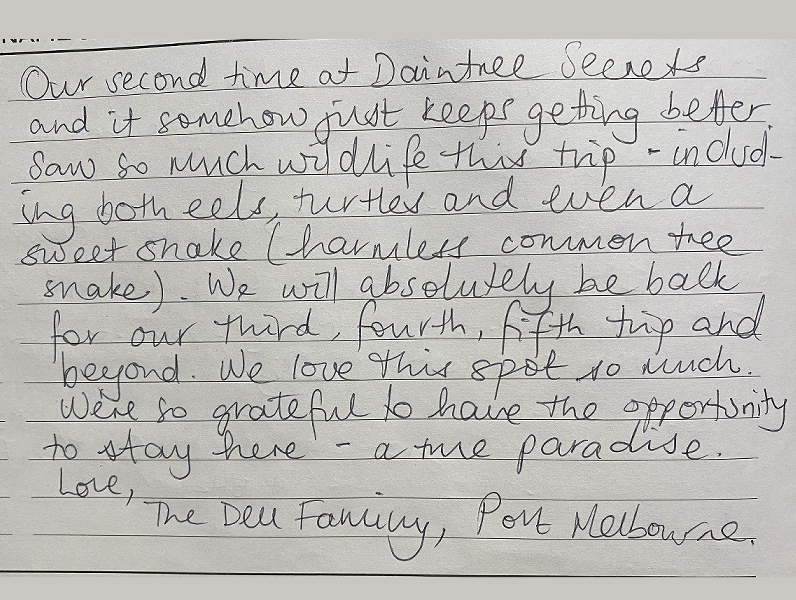 Our second time at Daintree Secrets
and it somehow just keeps getting better.
Saw so much wildlife this trip - includ-
ing both eels, turtles and even a
sweet snake (harmless common tree
snake). We will absolutely be back
for our third, fourth, fifth trip and
beyond. We love this spot so much.
We're so grateful to have the opportunity
to stay here - a true paradise.
Love,
The Dell Family, Port Melbourne.